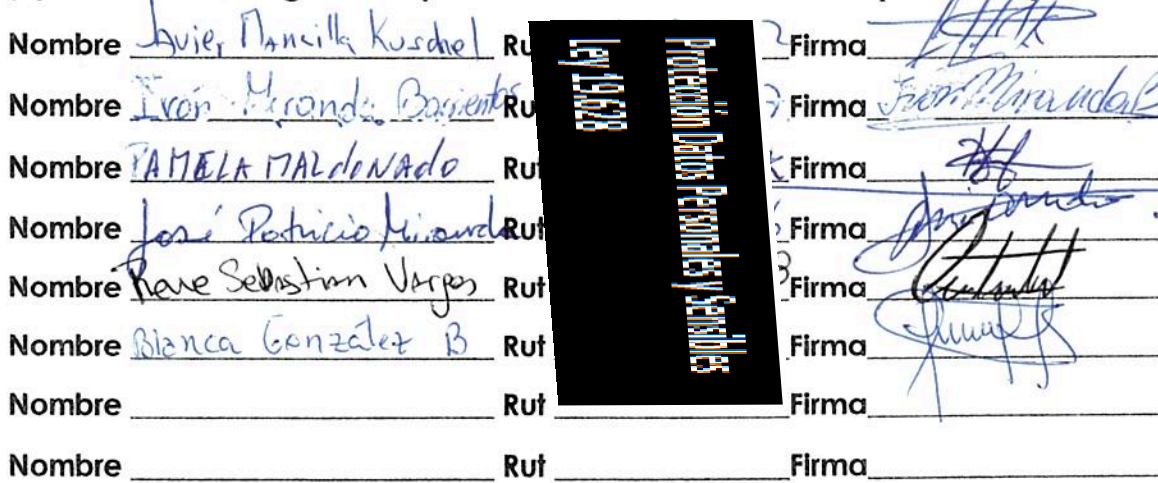 Nombre Javier Mancilla Kuschel Ru Firma
Nombre Iván Miranda Barrientos Ru Firma Iván Miranda B
Nombre PAMELA MALdONAdO Rut Firma
Nombre José Patricio Miranda Rut Firma
Nombre Rene Sebastian Vargas Rut Firma
Nombre Blanca González B Rut Firma
Nombre Rut Firma
Nombre Rut Firma
Protección Datos Personales y Sensibles
Ley 19.628